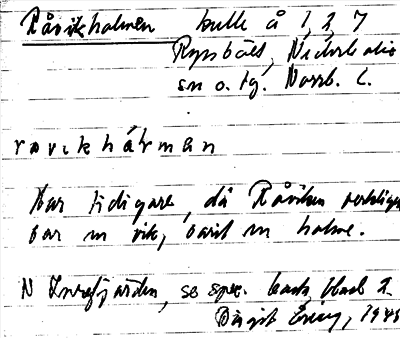 Råvikholmen kulle å 1, 2, 7
Rynbäck, Nederkalix
sn o. tg. Norrb. l.
råvikhålman
Har tidigare, då Råviken verklige
var en vik, varit en holme.
N Innerfjärden, se spec. karta, blad 2.
Birgit